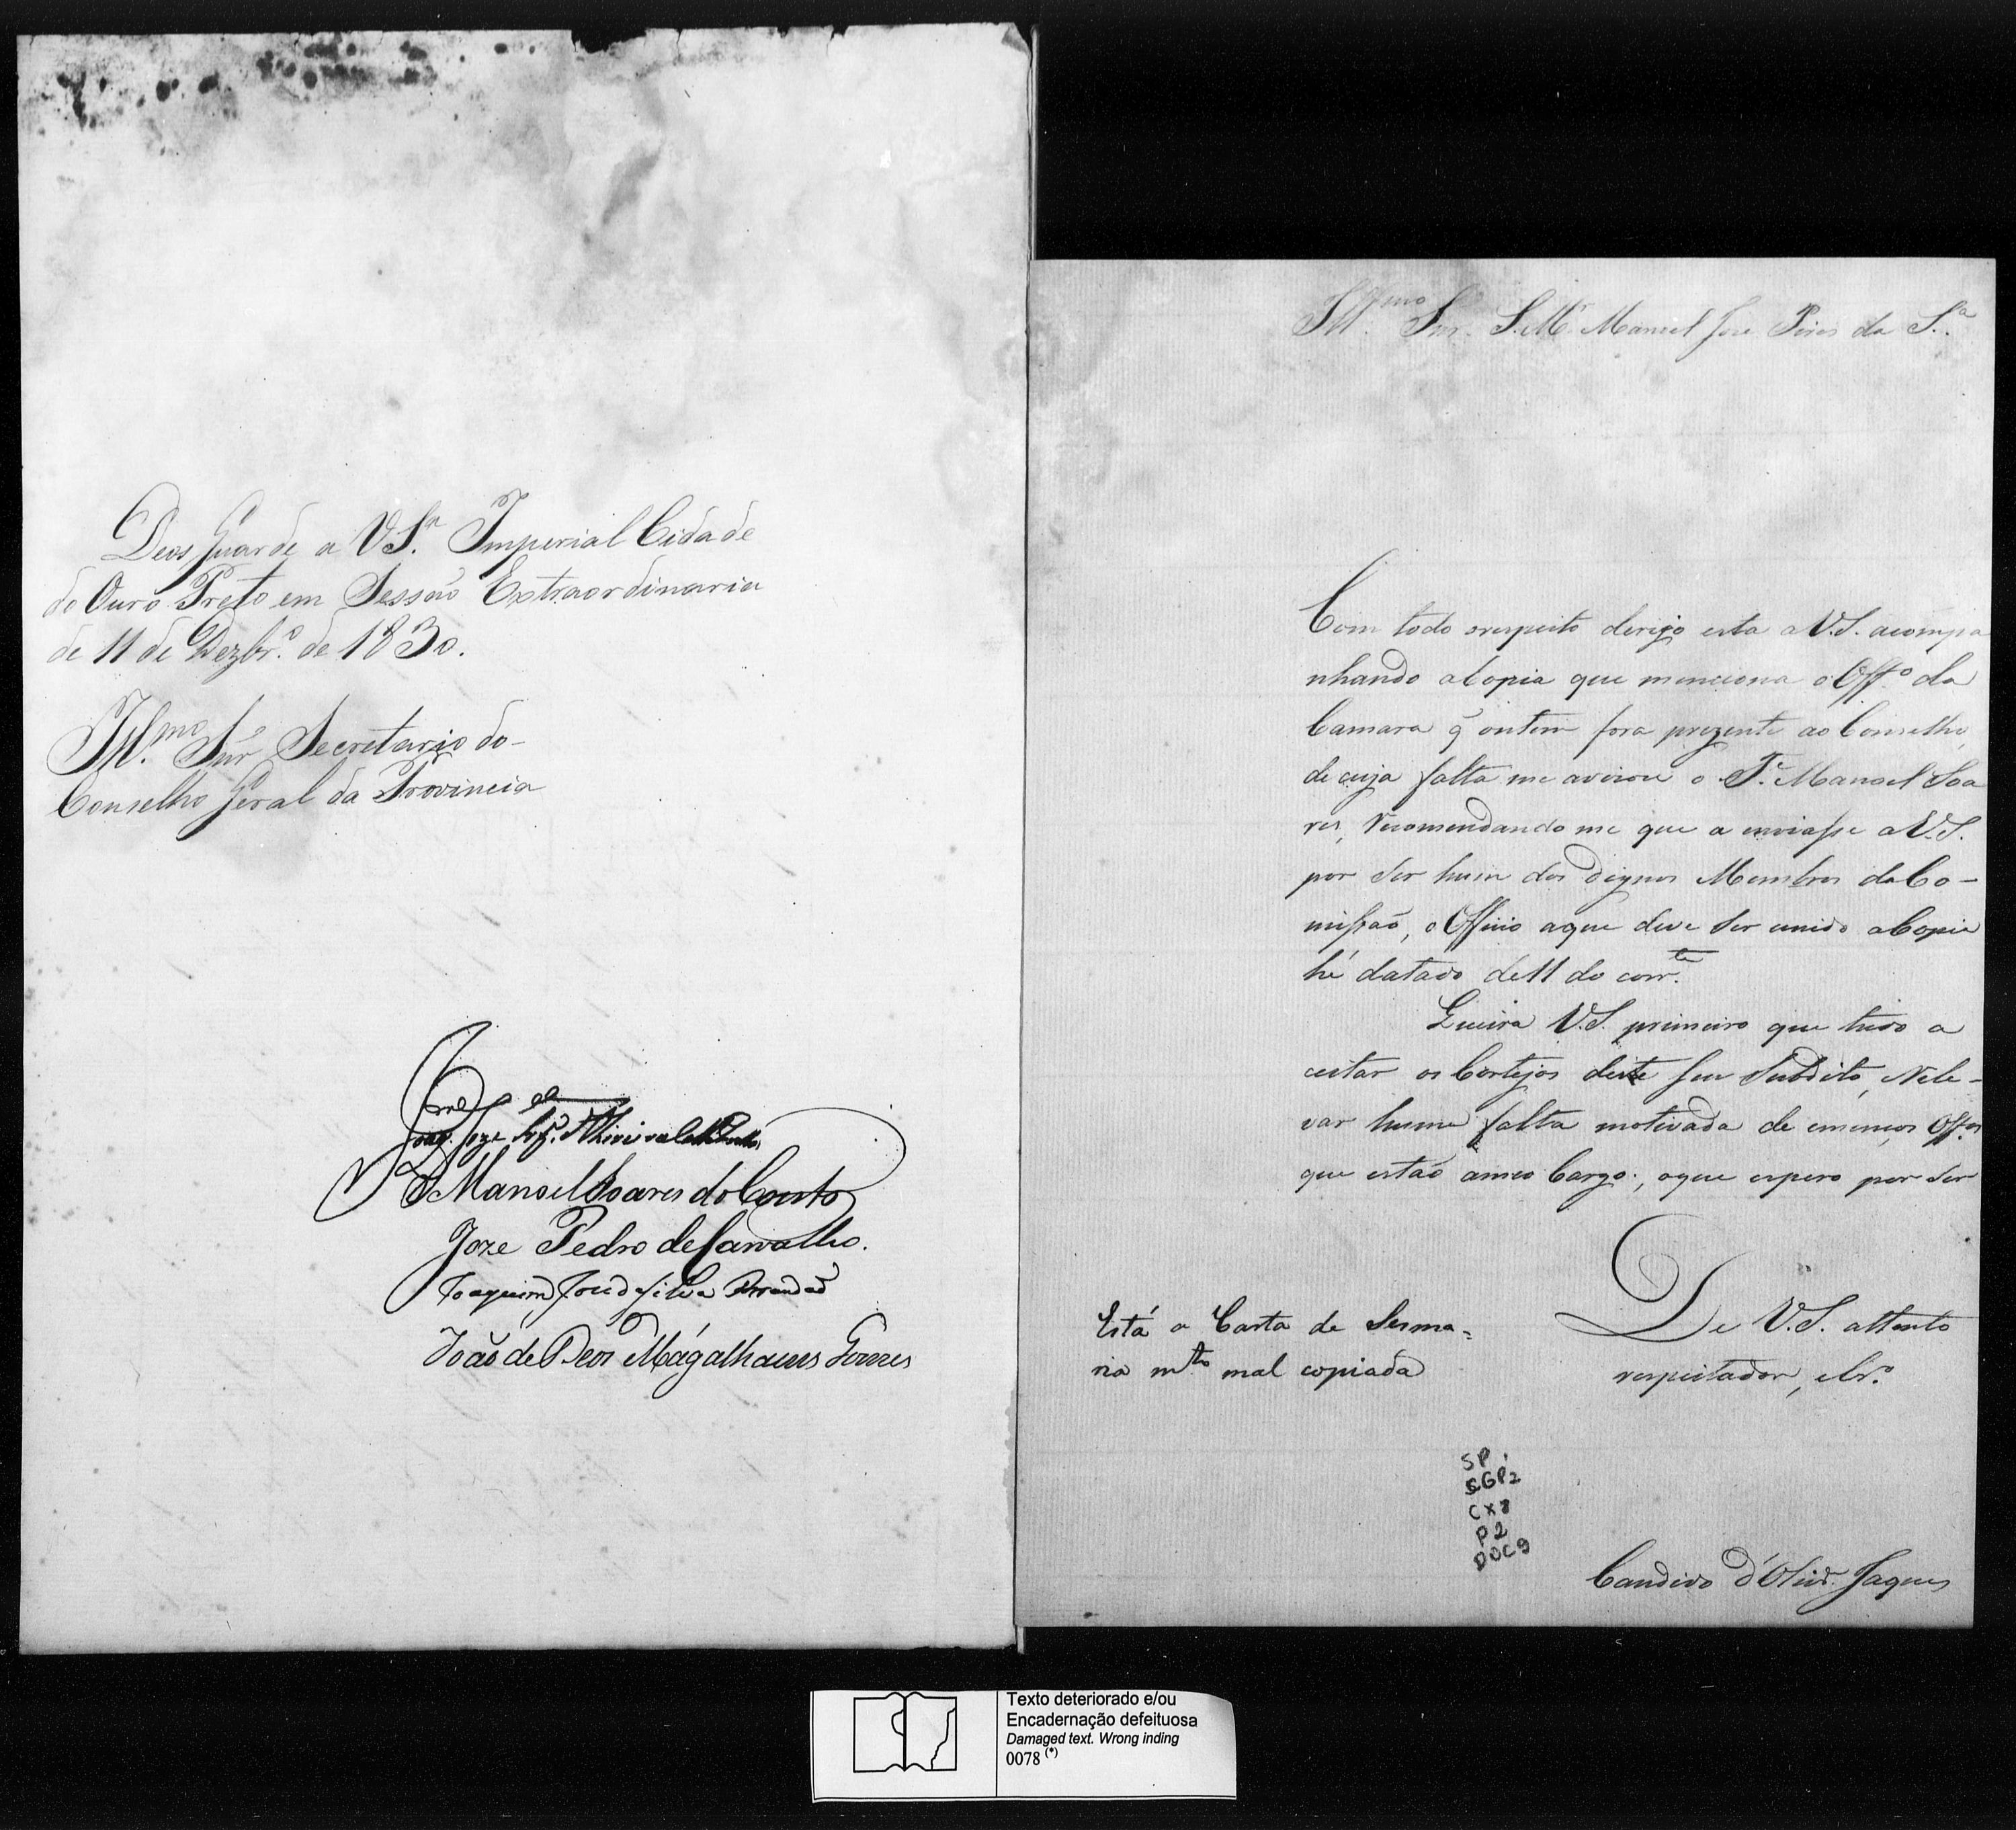 Deos Guarde a V S.ª Imperial Cidade
do Ouro Preto em Sessaõ Extraordinaria
de 11 de Dezbr.º de 1830.
Ill.mo Sñr Secretario do
Conselho Geral da Provincia
Manoel Soares do Couto
Joze Pedro de Carvalho.
Joaquim José da Silva Brandaõ
Joaõ de Deos Magalhaens Gomes
Ill.mo Snr. Manoel Jose Pires da S.ª
Com todo orespeito derijo esta a V.S. acompa
nhando aCopia que menciona o Off.º da
Camara q̃ ontem fora prezente ao Conselho,
de cuja falta me avizou o Manoel Soa
res, recomendando me que a enviasse a V.S.
por ser hum dos dignos Membros da Co-
missaõ, o Officio aque deve ser unido aCopia
hé datado de 11 do corr.te
Queira V.S. primeiro que tudo a
ceitar os Cortejos deste seu Subdito, rele-
var huma falta motivada de immensos Off.os
que estaõ ameo Cargo; oque espero por ser
De V.S. attento
respeitador, e Cr.º
Está a Carta de Sesma=
ria m.to mal copiada
SP
CGP2
CX8
P2
DOC9
Candido d'Oliv.ra Jaques
Texto deteriorado e/ou
Encadernação defeituosa
Damaged text. Wrong inding
0078 (*)